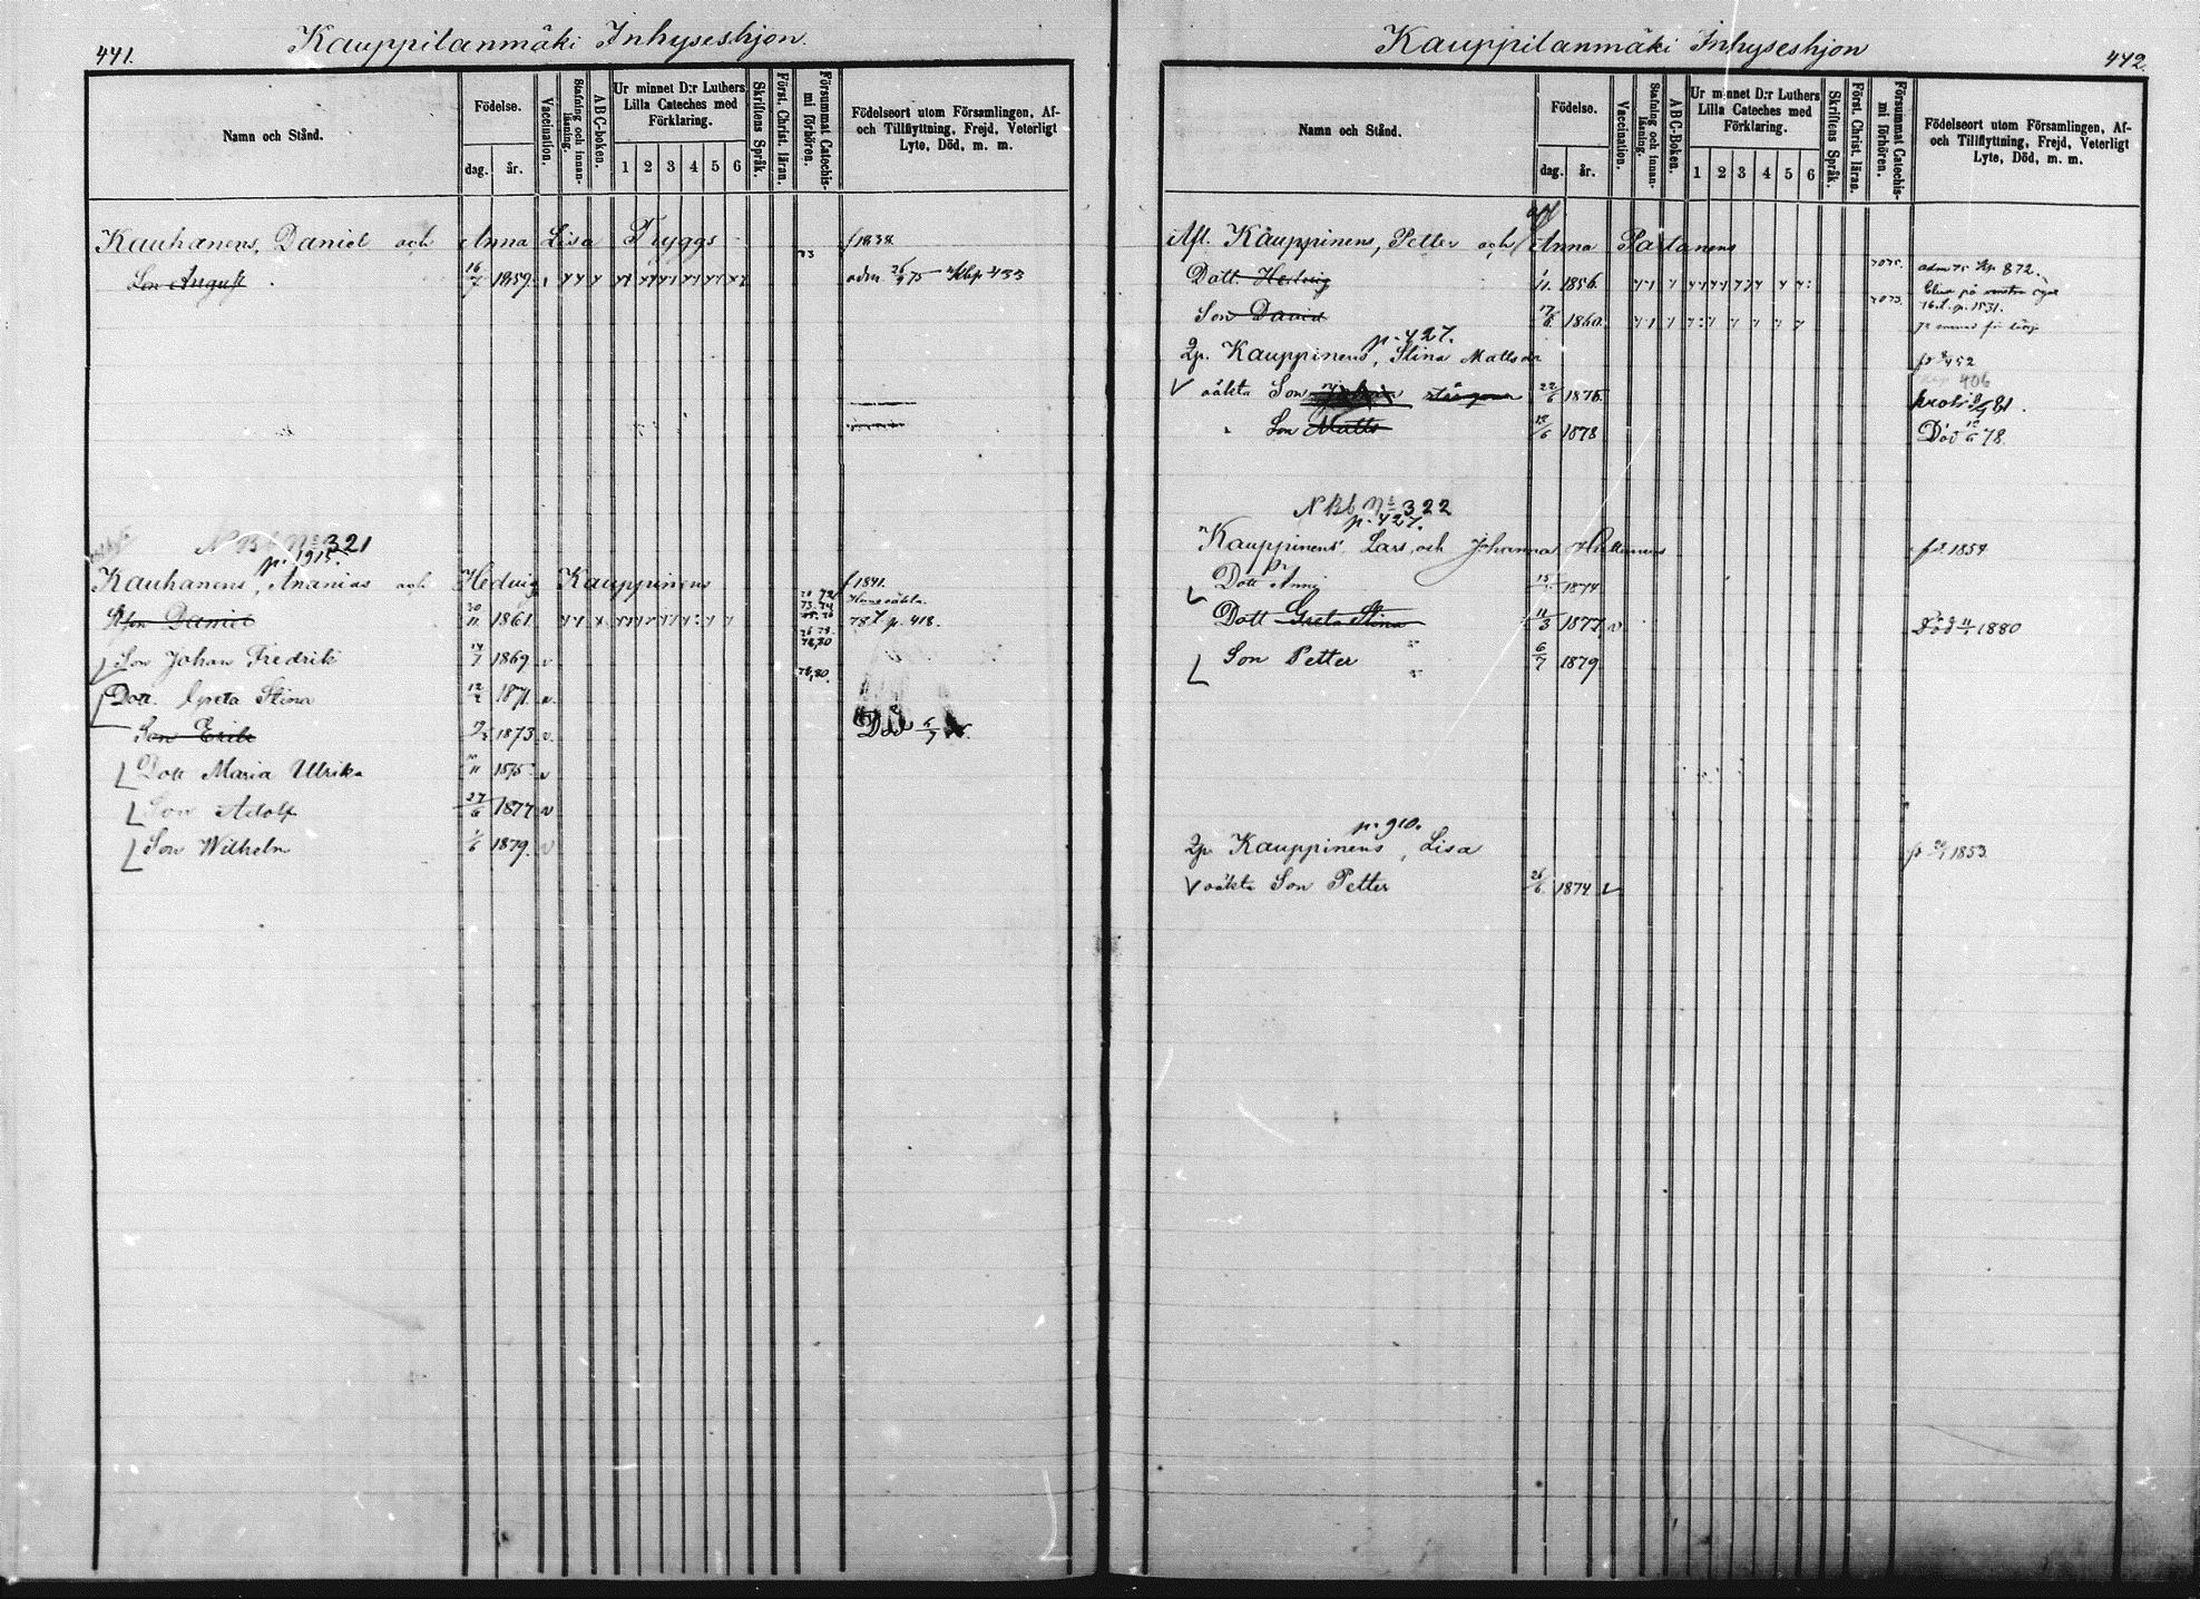 441.
Kauppilanmäki Inhyseshjon.
Namn och Stånd.
Födelse.
dag.
år.
Vaccination.
Stafning och innan-läsning.
ABC-boken.
Ur minnet D:r Luthers Lilla Cateches med Förklaring.
1 2 3 4 5 6
Skriftens Språk.
Först. Christ. läran.
Försummat Catechis-mi förhören.
Födelseort utom Församlingen, Af- och Tillflyttning, Frejd, Veterligt Lyte, Död, m. m.
Kauhanens, Daniel och Anna Lisa Tryggs 73 f 1838.
Son August 16/7 1859. adm. 26/9 75 Kbp 433
N Bb No 321
p. 1915.
Kauhanens, Ananias och Hedvig Kauppinens f 1841.
Son Daniel 20/11 1861. 78 p. 418.
Son Johan Fredrik 14/7 1869 v
Dott. Greta Stina 12/2 1871. v.
Son Erik 1873 v. Död
Dott Maria Ulrika 1875 v
Son Adolf 27/6 1877 v
Son Wilhelm 1/6 1879. v
Kauppilanmäki Inhyseshjon
442.
Namn och Stånd.
Födelse.
dag.
år.
Vaccination.
Stafning och innan-läsning.
ABC-Boken.
Ur minnet D:r Luthers Lilla Cateches med Förklaring.
1 2 3 4 5 6
Skriftens Språk.
Först. Christ. läran.
Försummat Catechis-mi förhören.
Födelseort utom Församlingen, Af- och Tillflyttning, Frejd, Veterligt Lyte, Död, m. m.
Afl. Kauppinens, Petter och Anna Partanens
Dott. Hedvig 1/11 1856. adm 75 Kp 872.
Son David 17/8 1860.
p. 427.
Qp. Kauppinens, Stina Mattsdr
406
oäkta Son 22/6 1875.
Son Matts 1878 Död 78.
N Bb No 322
p. 427.
Kauppinens, Lars och Johanna 1854
Dott Anni 15/ 1874
Dott Greta Stina 11/3 1877 v Död 1880
Son Petter 6/7 1879
p. 910.
Qp Kauppinens, Lisa 1853.
oäkta Son Petter 26/6 1874 v